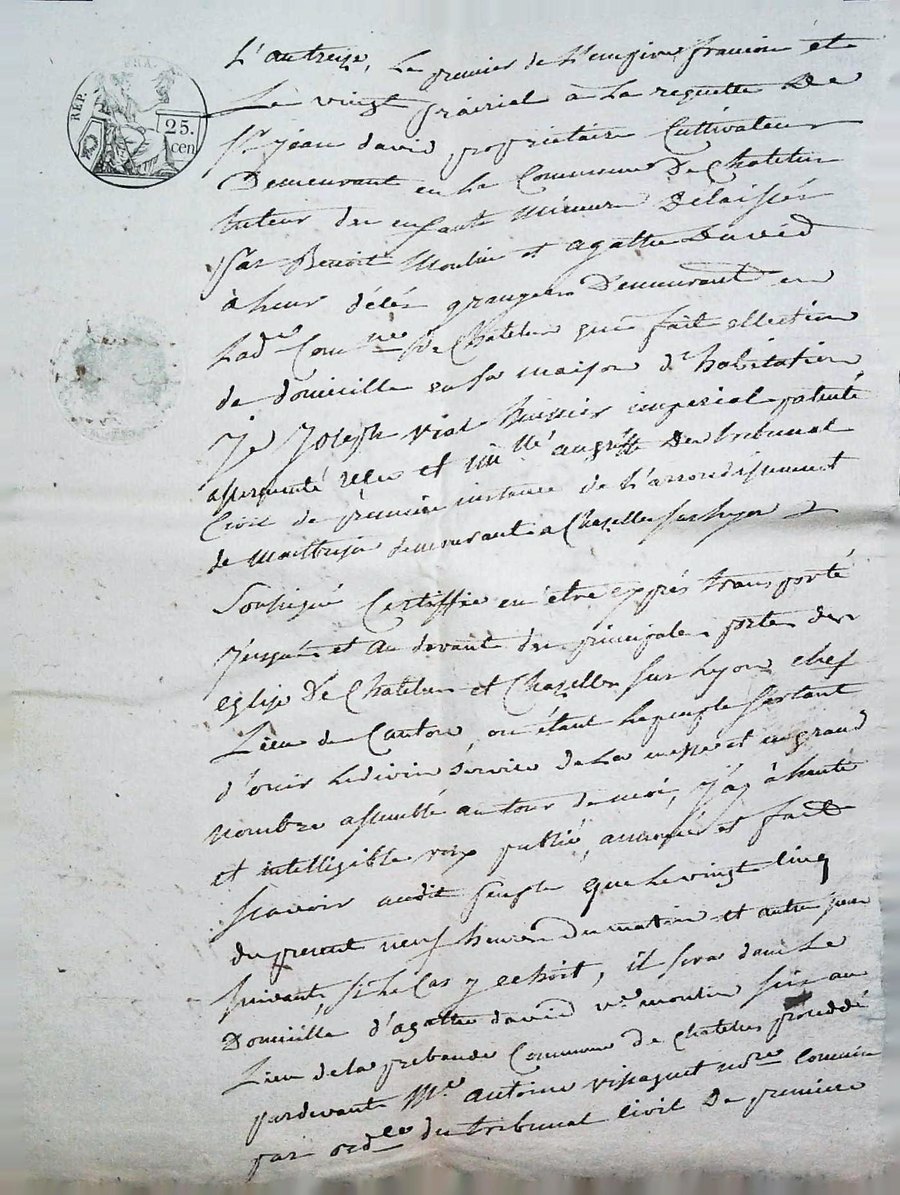 RÉP. FRA.
25.
cen
L'an treize, Le premier de L'empire francois et
Le vingt prairial à La requette De
Sr jean david propriétaire Cultivateur
Demeurant en La Commune De Chatelus
tuteur des enfants Mineurs Délaissés
par Benoit Moulin et agathe David
à leur décès grangers Demeurant en
Lade Comne de Chatelus qui fait ellection
de domicille en sa maison d'habitation
Je Joseph vial huissier imperial patenté
assermenté reçu et im lé au greffe Du tribunal
Civil de première instance de L'arrondissement
de Montbrison demeurant a Chazelles sur Lyon
Soussigné Certiffie en être exprès transporté
jusques et au devant des principales portes des
eglise De Chatelus et Chazelles sur Lyon chef
Lieu de Canton, ou étant le peuple sortant
d'ouir Le divin service de La messe et en grand
nombre assemblé autour de moi, j'ay à haute
et intelligible voix publié, annoncé et fait
scavoir audit peuple que Le vingt cinq
du present neuf heures Du matin et autre jour
suivant, si Le Cas y echoit, il sera dans Le
Domicille d'agathe david ve moulin sis au
Lieu de La prebande Commune de Chatelus procédé
pardevant Me antoine vissaguet nore Commis
par ordce du tribunal Civil De première